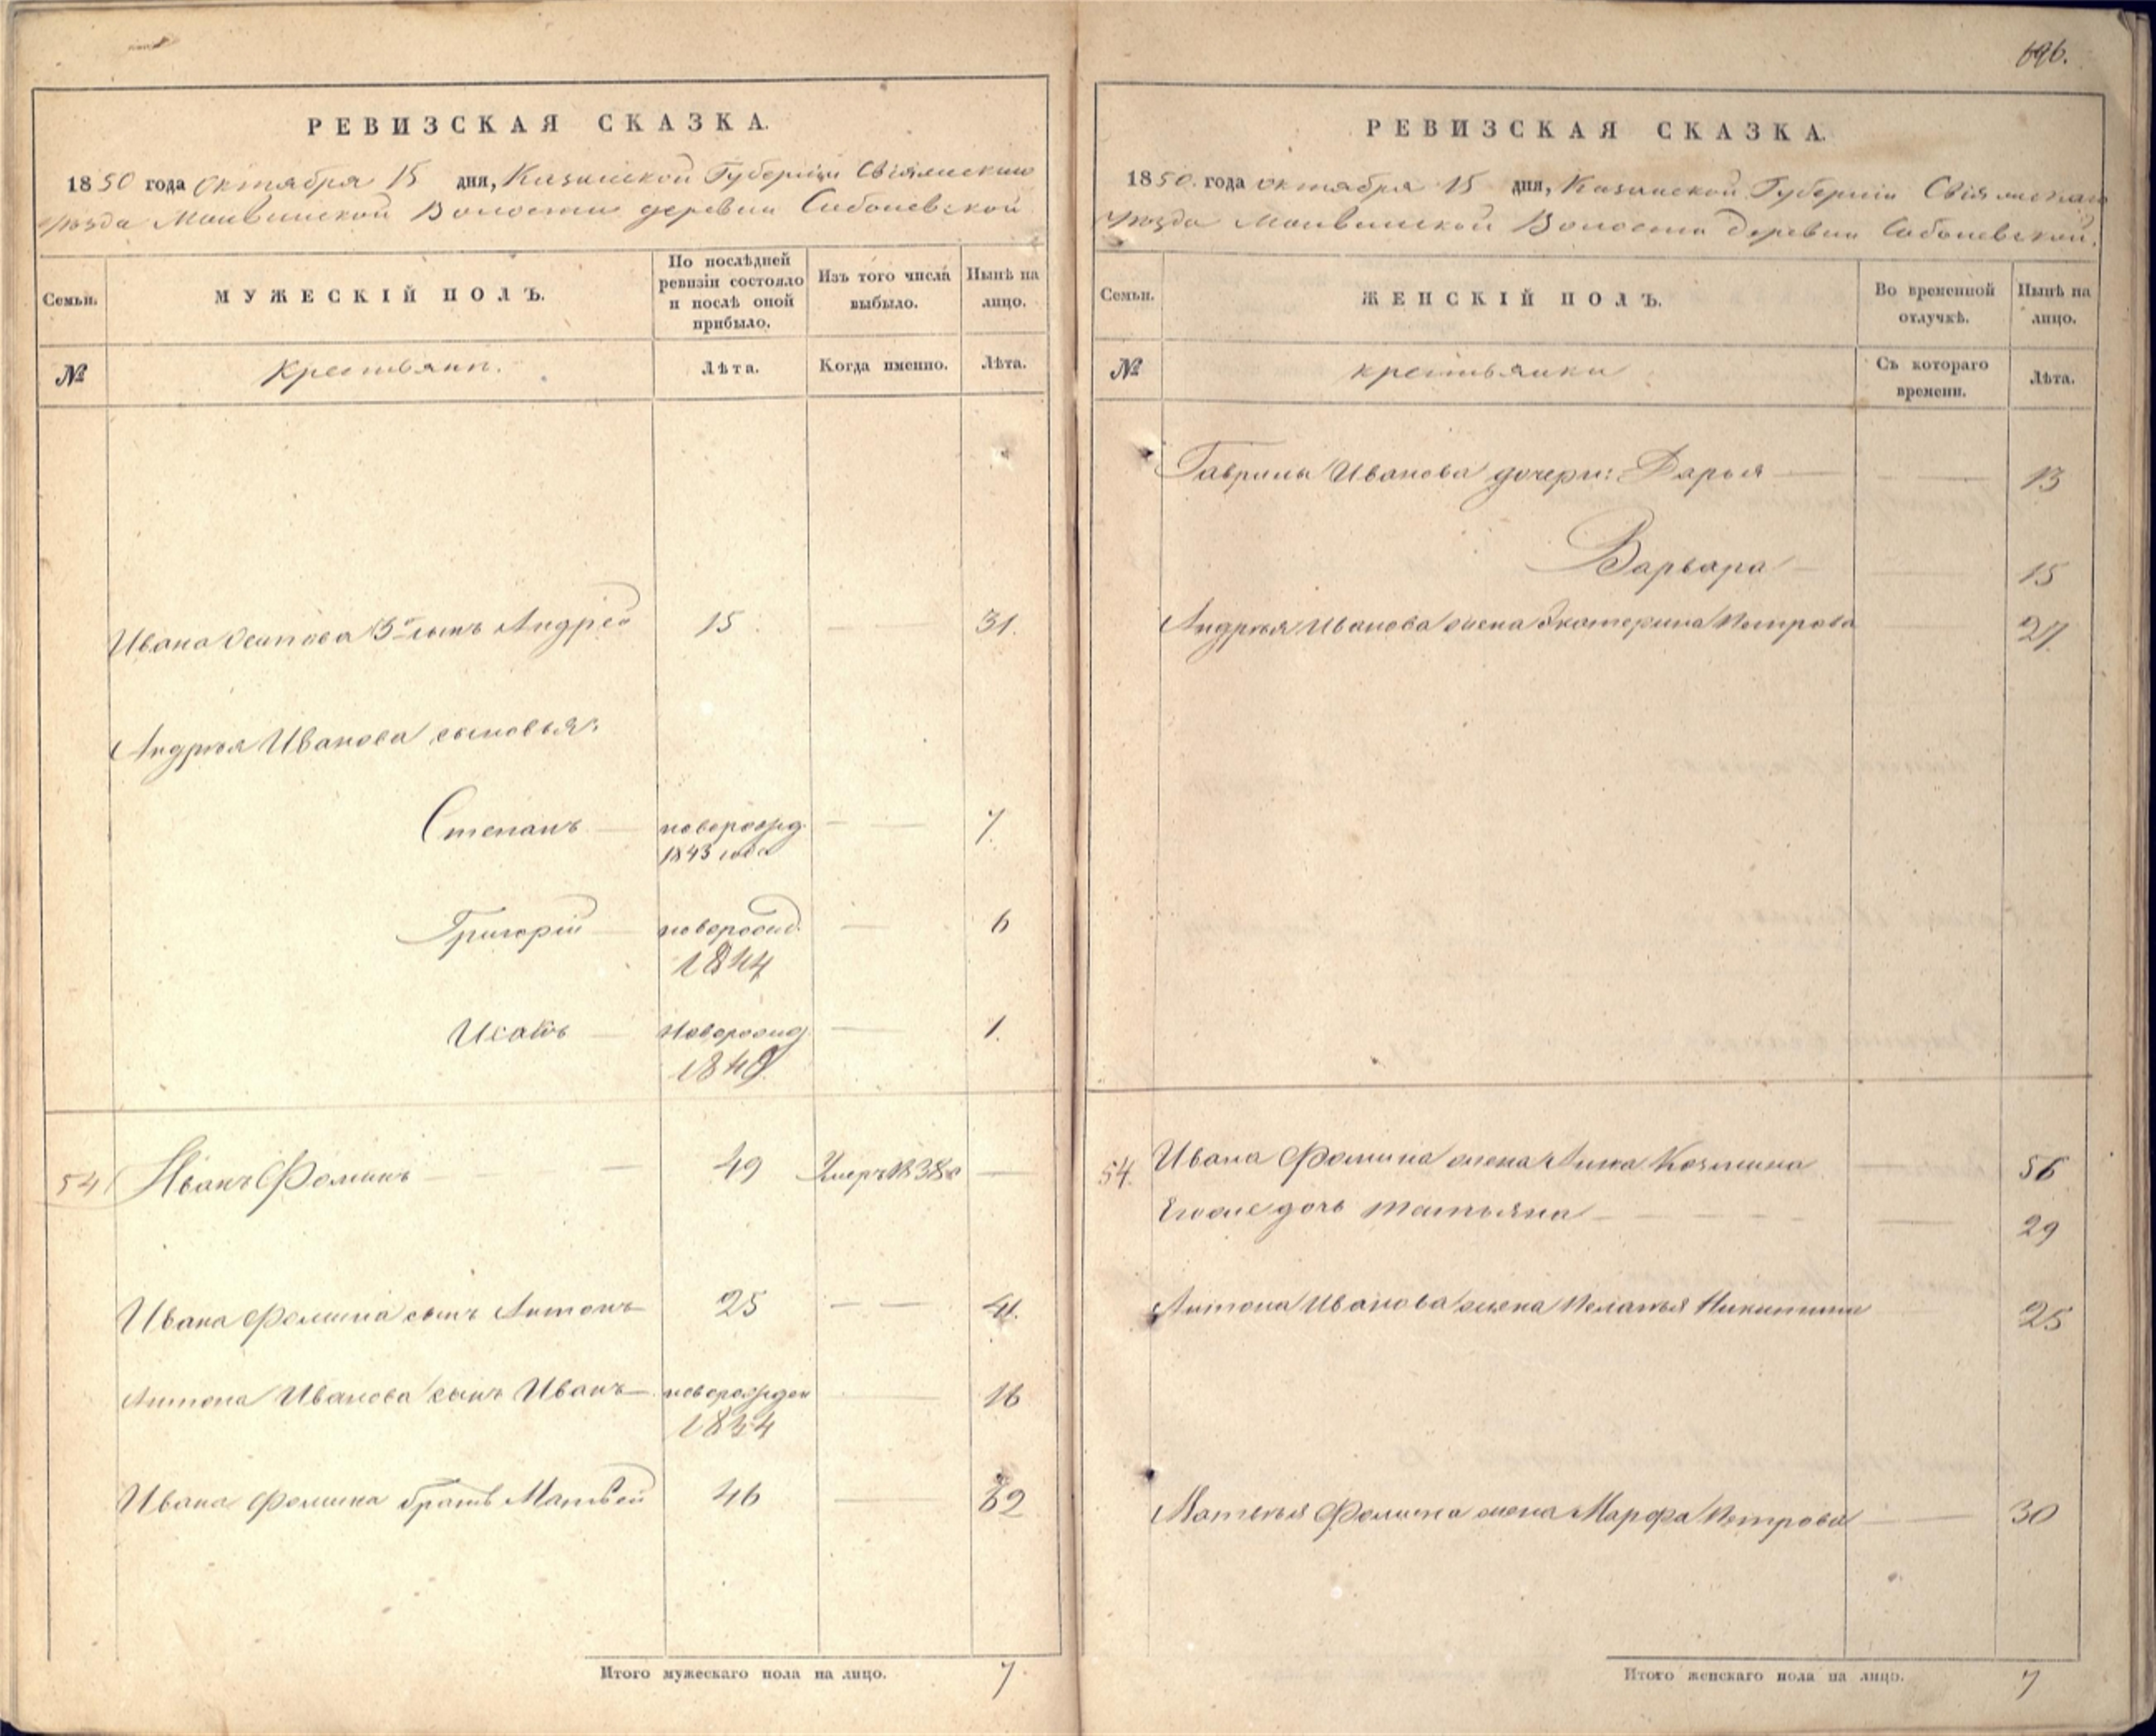 696.
РЕВИЗСКАЯ СКАЗКА.
1850 года октября 15 дня, Казанской Губерніи Свіяжскаго
уѣзда Волости деревни
Семьи.
МУЖЕСКІЙ ПОЛЪ.
По послѣдней ревизіи состояло и послѣ оной прибыло.
Изъ того числа выбыло.
Нынѣ на лицо.
№
Крестьяне.
Лѣта.
Когда именно.
Лѣта.
Ивана Осипова 3й сынъ Андрей 15 31.
Андрея Иванова сыновья:
Степанъ новорожд. 7.
1843 года
Григорій новорожд. 6
1844
Исакъ новорожд. 1.
1849.
54 Иванъ Фоминъ 49 Умеръ 1838
Ивана Фомина сынъ Антонъ 25 41.
Антона Иванова сынъ Иванъ новорожден 16
1834
Ивана Фомина братъ Матвей 46 62
Итого мужескаго пола на лицо. 7.
РЕВИЗСКАЯ СКАЗКА.
1850. года октября 15 дня, Казанской Губерніи Свіяжскаго
уѣзда Волости деревни
Семьи.
ЖЕНСКІЙ ПОЛЪ.
Во временной отлучкѣ.
Нынѣ на лицо.
№
крестьянки
Съ котораго времени.
Лѣта.
Гаврилы Иванова дочери: Дарья 13
Варвара 15
Андрея Иванова жена Екатерина Петрова 27.
54. Ивана Фомина жена Анна Козмина 56
Егоже дочь Татьяна 29
Антона Иванова жена Пелагья Никитина 25
Матвѣя Фомина жена Марфа Петрова 30
Итого женскаго пола на лицо. 7